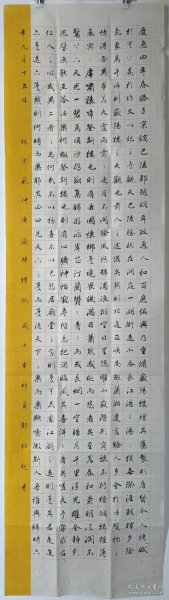 慶曆四年春滕子京謫巴陵郡越明年政通人和百廢俱興乃重修岳陽樓增其舊制刻唐賢今人詩賦
於其上屬予作文以記之予觀夫巴陵勝狀在洞庭一湖銜遠山吞長江浩浩湯湯橫無際涯朝暉夕陰
氣象萬千此則岳陽樓之大觀也前人之述備矣然則北通巫峽南極瀟湘遷客騷人多會於此覽物之
情得無異乎若夫霪雨霏霏連月不開陰風怒號濁浪排空日星隱曜山岳潛形商旅不行檣傾楫摧薄
暮冥冥虎嘯猿啼登斯樓也則有去國懷鄉憂讒畏譏滿目蕭然感極而悲者矣至若春和景明波瀾不
驚上下天光一碧萬頃沙鷗翔集錦鱗游泳岸芷汀蘭郁郁青青而或長煙一空皓月千里浮光躍金靜影
沉璧漁歌互答此樂何極登斯樓也則有心曠神怡寵辱偕忘把酒臨風其喜洋洋者矣嗟夫予嘗求古
仁人之心或異二者之為何哉不以物喜不以己悲居廟堂之高則憂其民處江湖之遠則憂其君是進
亦憂退亦憂然則何時而樂耶其必曰先天下之憂而憂後天下之樂而樂歟噫微斯人吾誰與歸時六
年九月十五日 范仲淹岳陽樓記 書